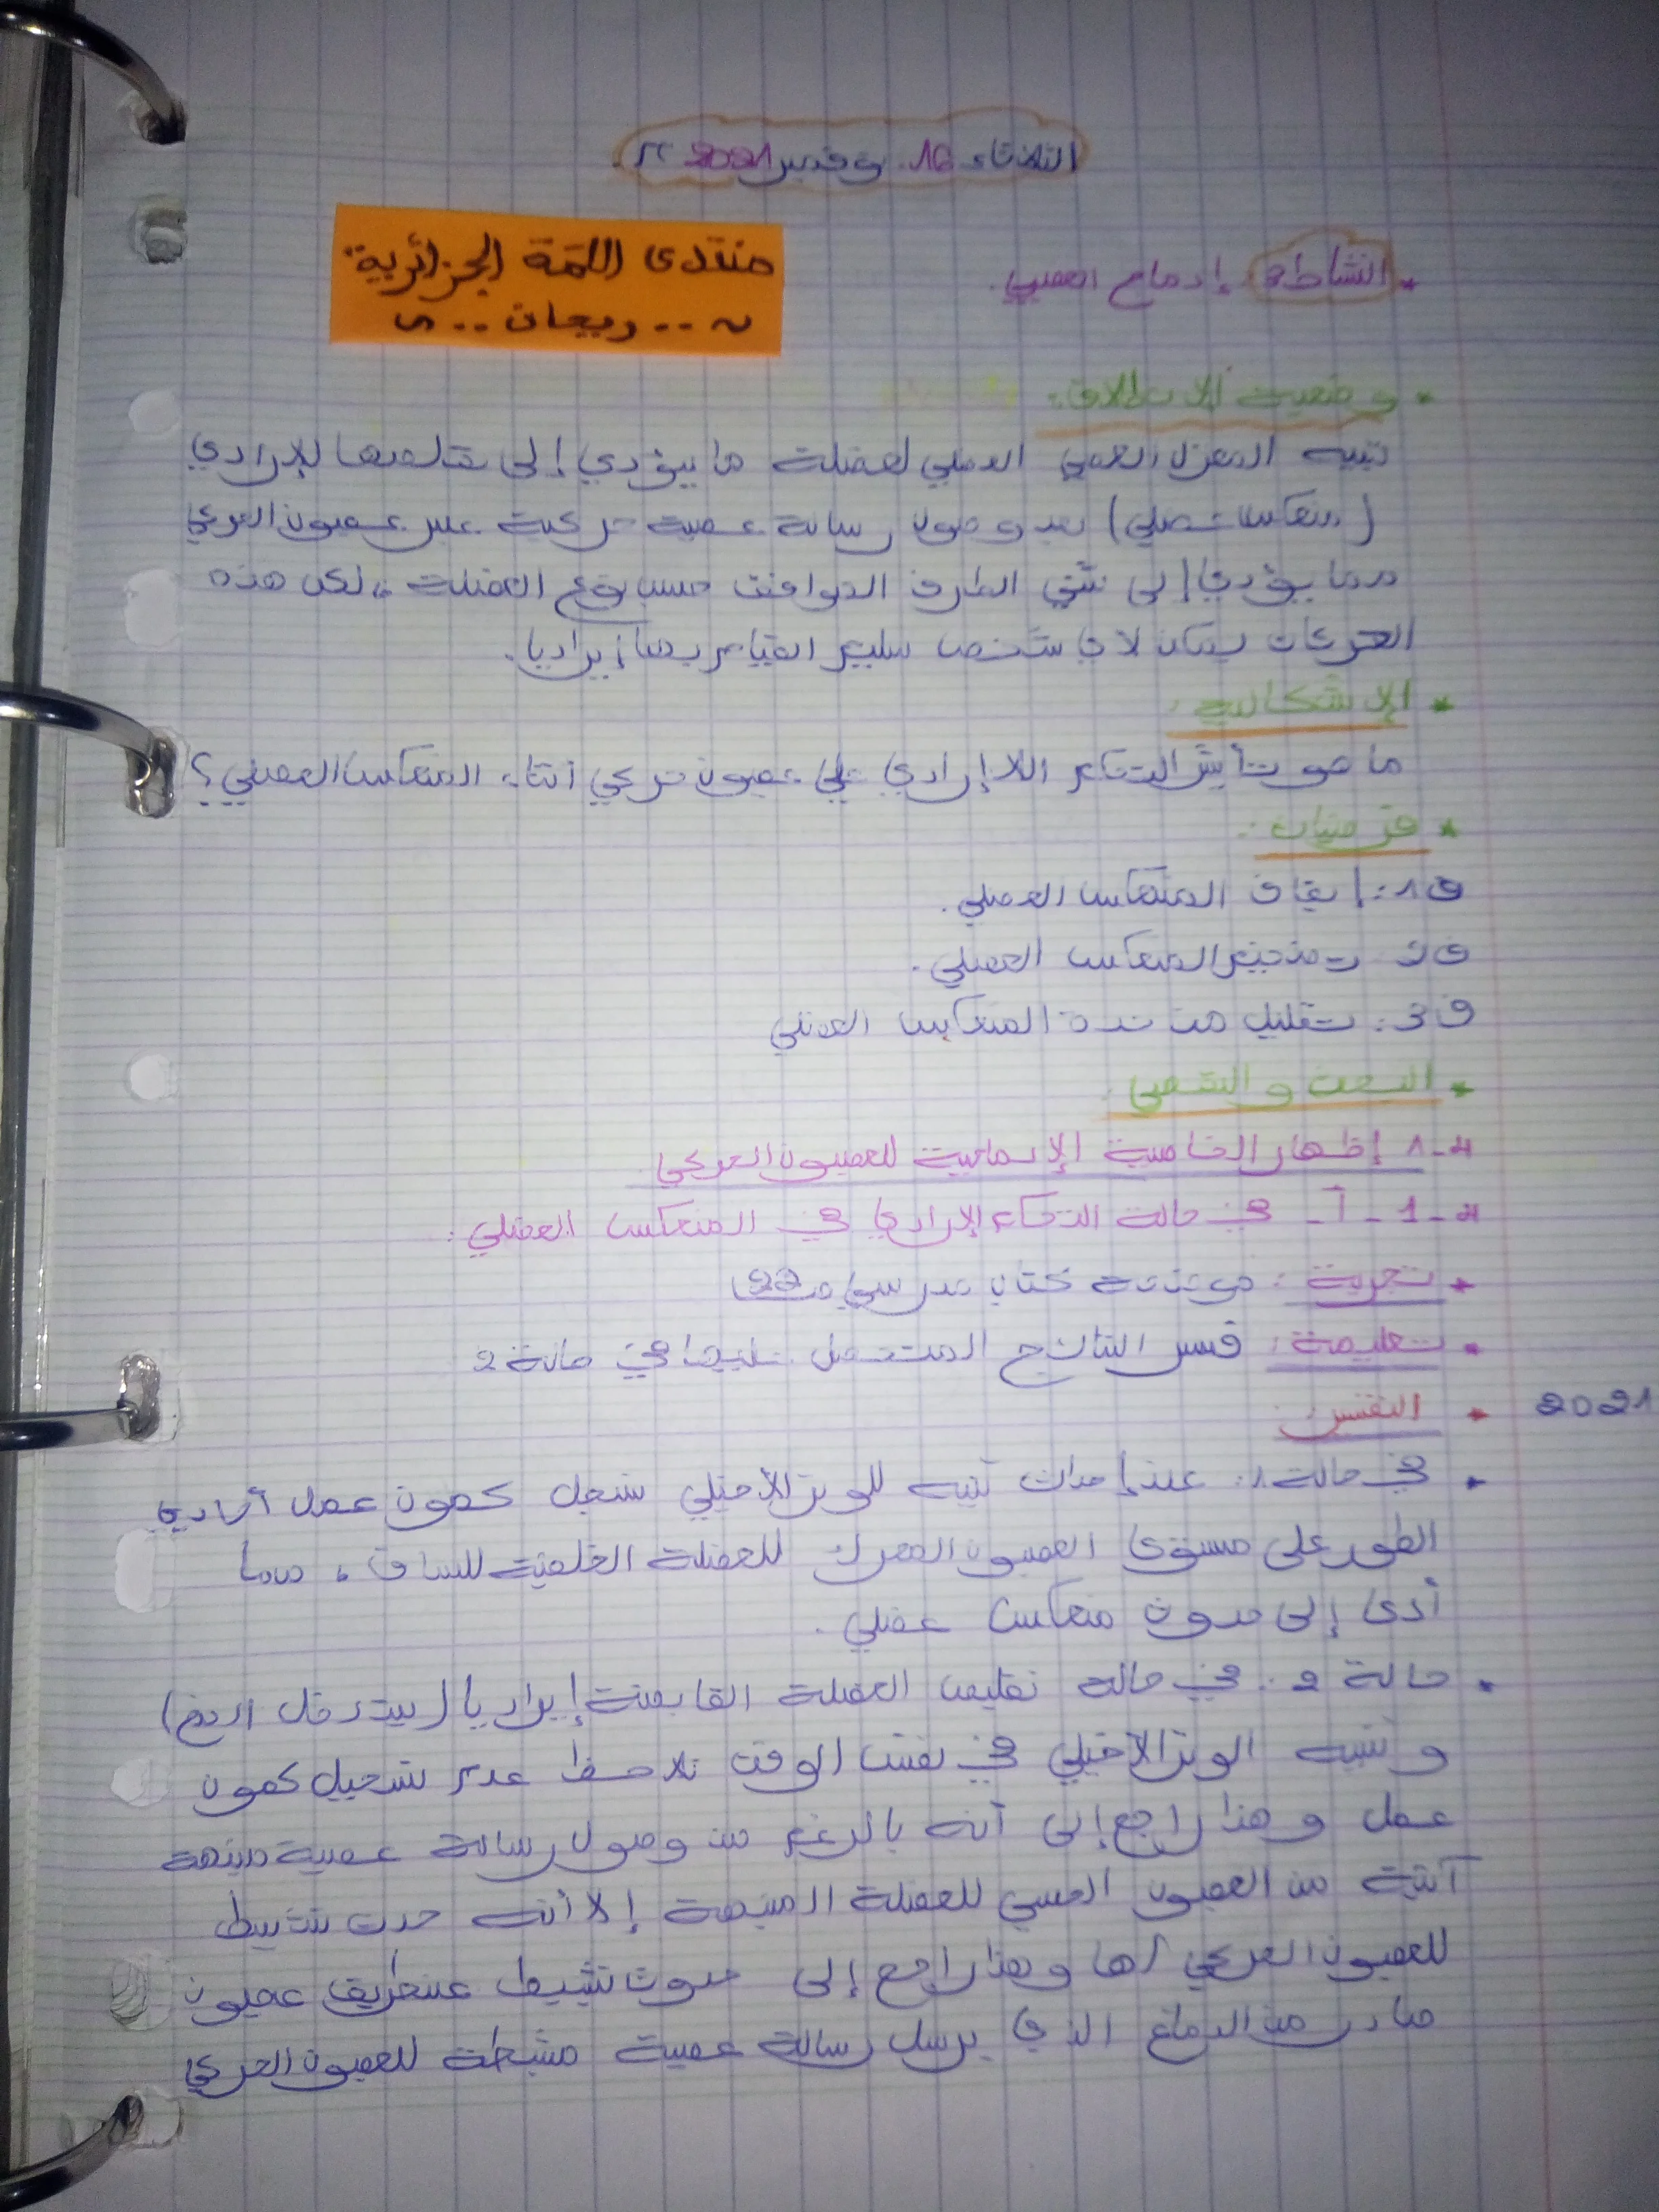 الثلاثاء 16. نوفمبر 2021 م.
* النشاط 3: إدماج العصبي.
منتدى اللمة الجزائرية:
~ .. ريحان .. ~
* وضعية الانطلاق:
تنبيه المغزل العصبي العضلي لعضلة ما يؤدي إلى تقلصها الاإرادي
(منعكس عضلي) بعد وصول رسالة عصبية حركية عبر عصبون الحركي
مما يؤدي إلى ثني الطرف الموافق حسب نوع العضلة، لكن هذه
الحركات يمكن لأي شخص سليم القيام بها إراديا.
* الإشكالية:
ما هو تأثير التحكم اللاإرادي على عصبون حركي أثناء المنعكس العضلي؟
* فرضيات:
ف1: إيقاف المنعكس العضلي.
ف2 تحفيز المنعكس العضلي.
ف3: تقليل من شدة المنعكس العضلي
* البحث و التقصي:
1- إظهار الخاصية الإدماجية للعصبون الحركي
1 - أ - في حالة التحكم الإرادي في المنعكس العضلي:
* تجربة: كتاب مدرسي ص 22
* تعليمة: فسر النتائج المتحصل عليها في حالة 2
2021
* التفسير:
• في حالة 1: عند إحداث تنبيه للوتر الأخيلي سجل كمون عمل أحادي
الطور على مستوى العصبون المحرك للعضلة الخلفية للساق، مما
أدى إلى حدوث منعكس عضلي.
• حالة 2: في حالة تقليص العضلة القابضة إراديا (يتدخل المخ)
و تنبيه الوتر الأخيلي في نفس الوقت نلاحظ عدم تسجيل كمون
عمل و هذا راجع إلى أنه بالرغم من وصول رسالة عصبية منبهة
آتية من العصبون الحسي للعضلة المنبهة إلا أنه حدث تثبيط
للعصبون الحركي لها و هذا راجع إلى حدوث تثبيط عن طريق عصبون
صادر من الدماغ الذي يرسل رسالة عصبية مثبطة للعصبون الحركي